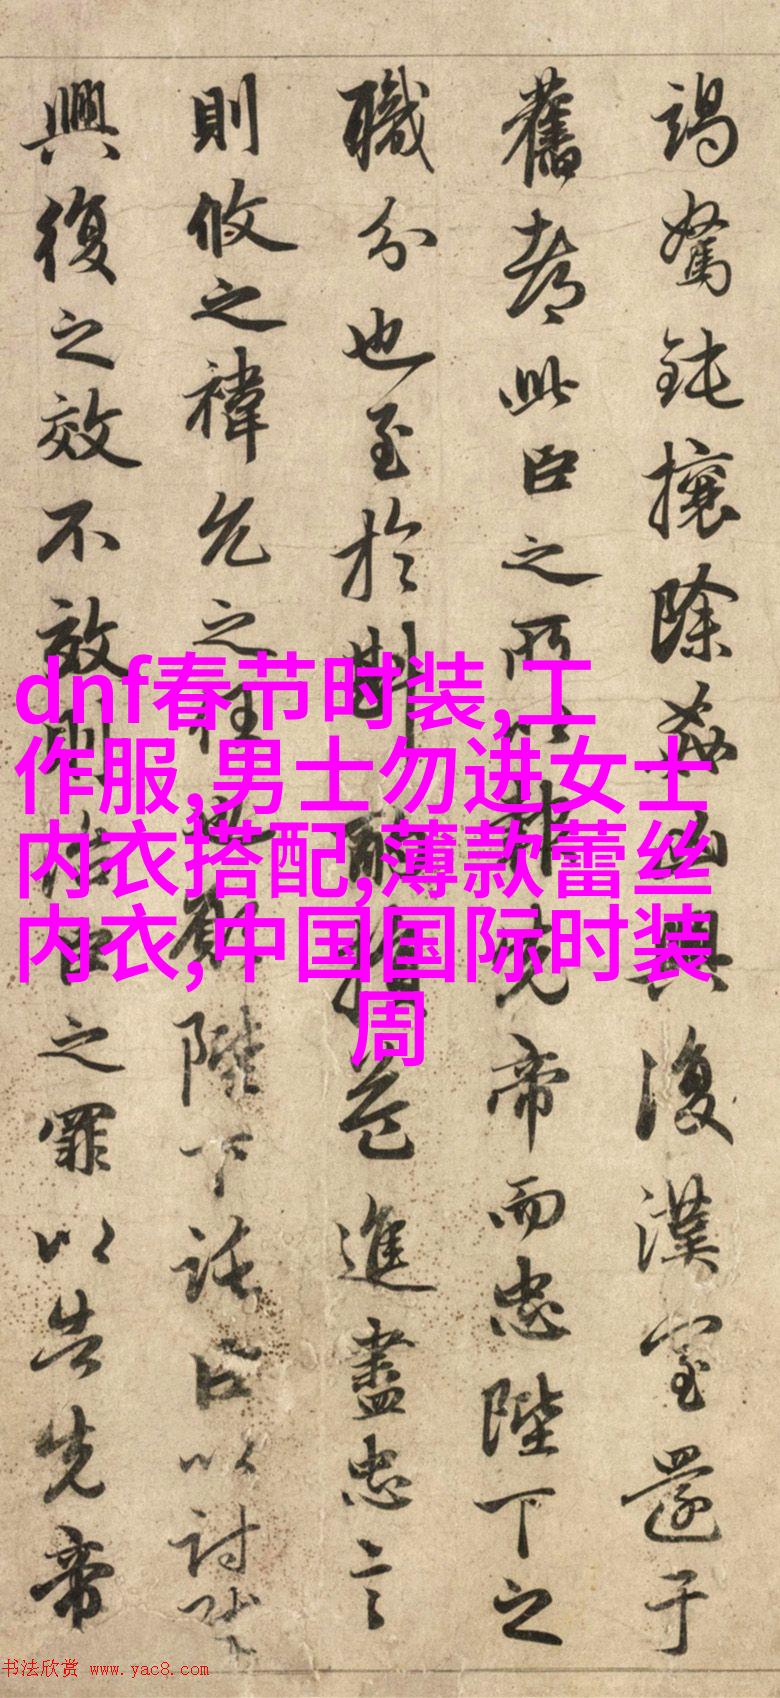 竭駑鈍攘除姦凶興復漢室還于
舊都此臣之所以報先帝而忠陛下之
職分也至於斟酌損益進盡忠言
則攸之禕允之任也願陛下託臣以討賊
興復之效不效則治臣之罪以告先帝
dnf春节时装,工
作服,男士勿进女士
内衣搭配,薄款蕾丝
内衣,中国国际时装
周
书法欣赏 www.yac8.com